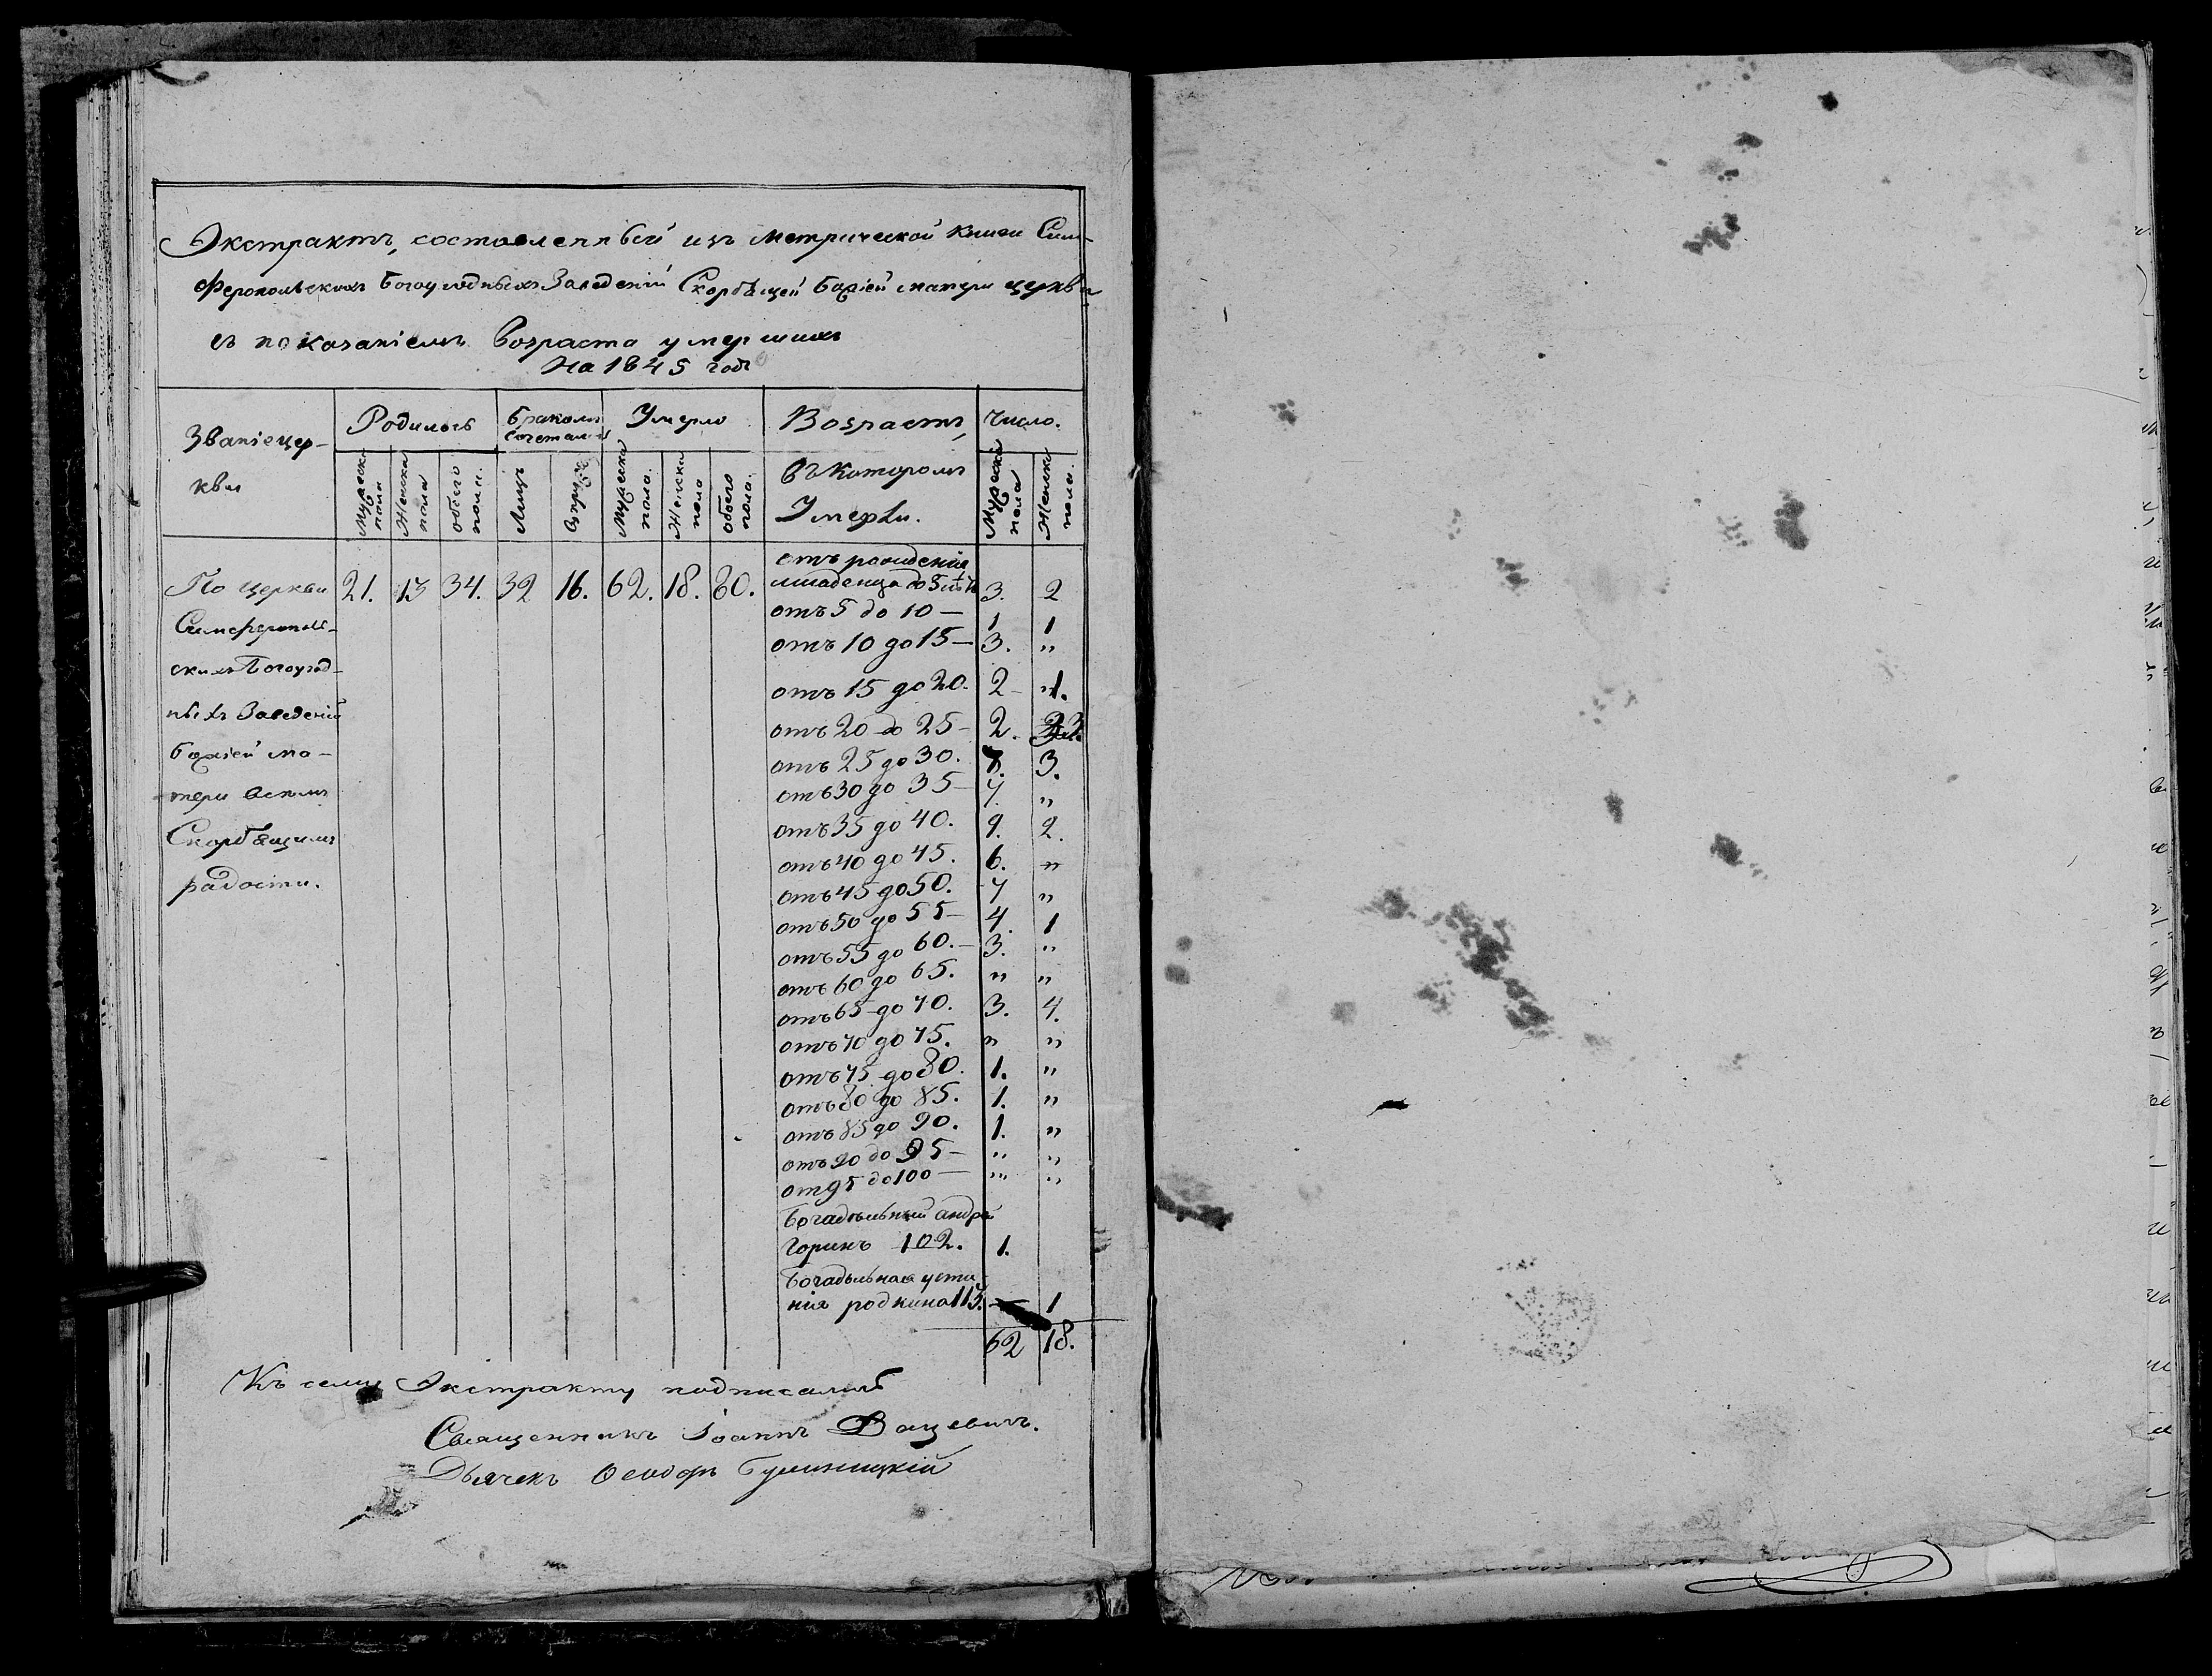 Экстрактъ, составленный изъ метрической книги Сим-
феропольскихъ Богоугодныхъ Заведеній Скорбящей Божіей матери церкви
съ показаніемъ возраста умершихъ
На 1845 годъ
Званіе цер-
кви
Родилось
Бракомъ
сочеталось
Умерло
Возрастъ,
въ которомъ
Умерли.
Число.
Мужеска
пола
Женска
пола
обоего
пола.
Лицъ
Мужеска
пола.
Женска
пола
обоего
пола.
Мужеска
пола
Женска
пола.
По церкви
Симферополь-
скихъ Богоугод-
ныхъ Заведеній
Божіей ма-
тери всѣхъ
Скорбящимъ
радости.
21. 13 34. 32 16. 62. 18. 80.
отъ рожденія
младенца до 5 3. 2
отъ 5 до 10 — 1 1
отъ 10 до 15 — 3. "
отъ 15 до 20. 2 1.
отъ 20 до 25 — 2.
отъ 25 до 30. 3.
отъ 30 до 35 — 7. "
отъ 35 до 40. 9. 2.
отъ 40 до 45. 6. "
отъ 45 до 50. 7 "
отъ 50 до 55 — 4. 1
отъ 55 до 60. — 3. "
отъ 60 до 65. " "
отъ 65 до 70. 3. 4.
отъ 70 до 75. " "
отъ 75 до 80. 1. "
отъ 80 до 85. 1. "
отъ 85 до 90. 1. "
отъ 90 до 95 — " "
от 95 до 100 — " "
Богадѣльный андрей
Горинъ 102. 1.
Богадѣльная усти-
нія родкина 113. 1
62 18.
Къ сему Экстракту подписались
Священникъ Іоаннъ Вацевичъ.
Дьячекъ Ѳеодоръ